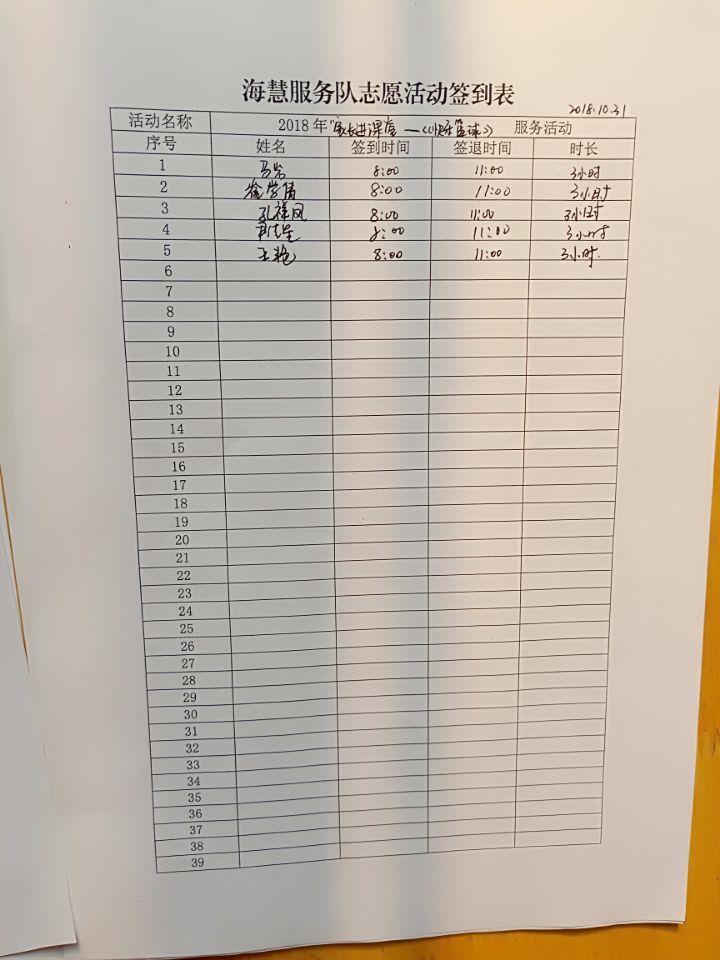 海慧服务队志愿活动签到表
2018.10.31
活动名称 2018年"家长进课堂—《快乐篮球》 服务活动
序号 姓名 签到时间 签退时间 时长
1 马岩 8:00 11:00 3小时
2 8:00 11:00 3小时
3 孔祥凤 8:00 11:00 3小时
4 8:00 11:00 3小时
5 王艳 8:00 11:00 3小时.
6
7
8
9
10
11
12
13
14
15
16
17
18
19
20
21
22
23
24
25
26
27
28
29
30
31
32
33
34
35
36
37
38
39